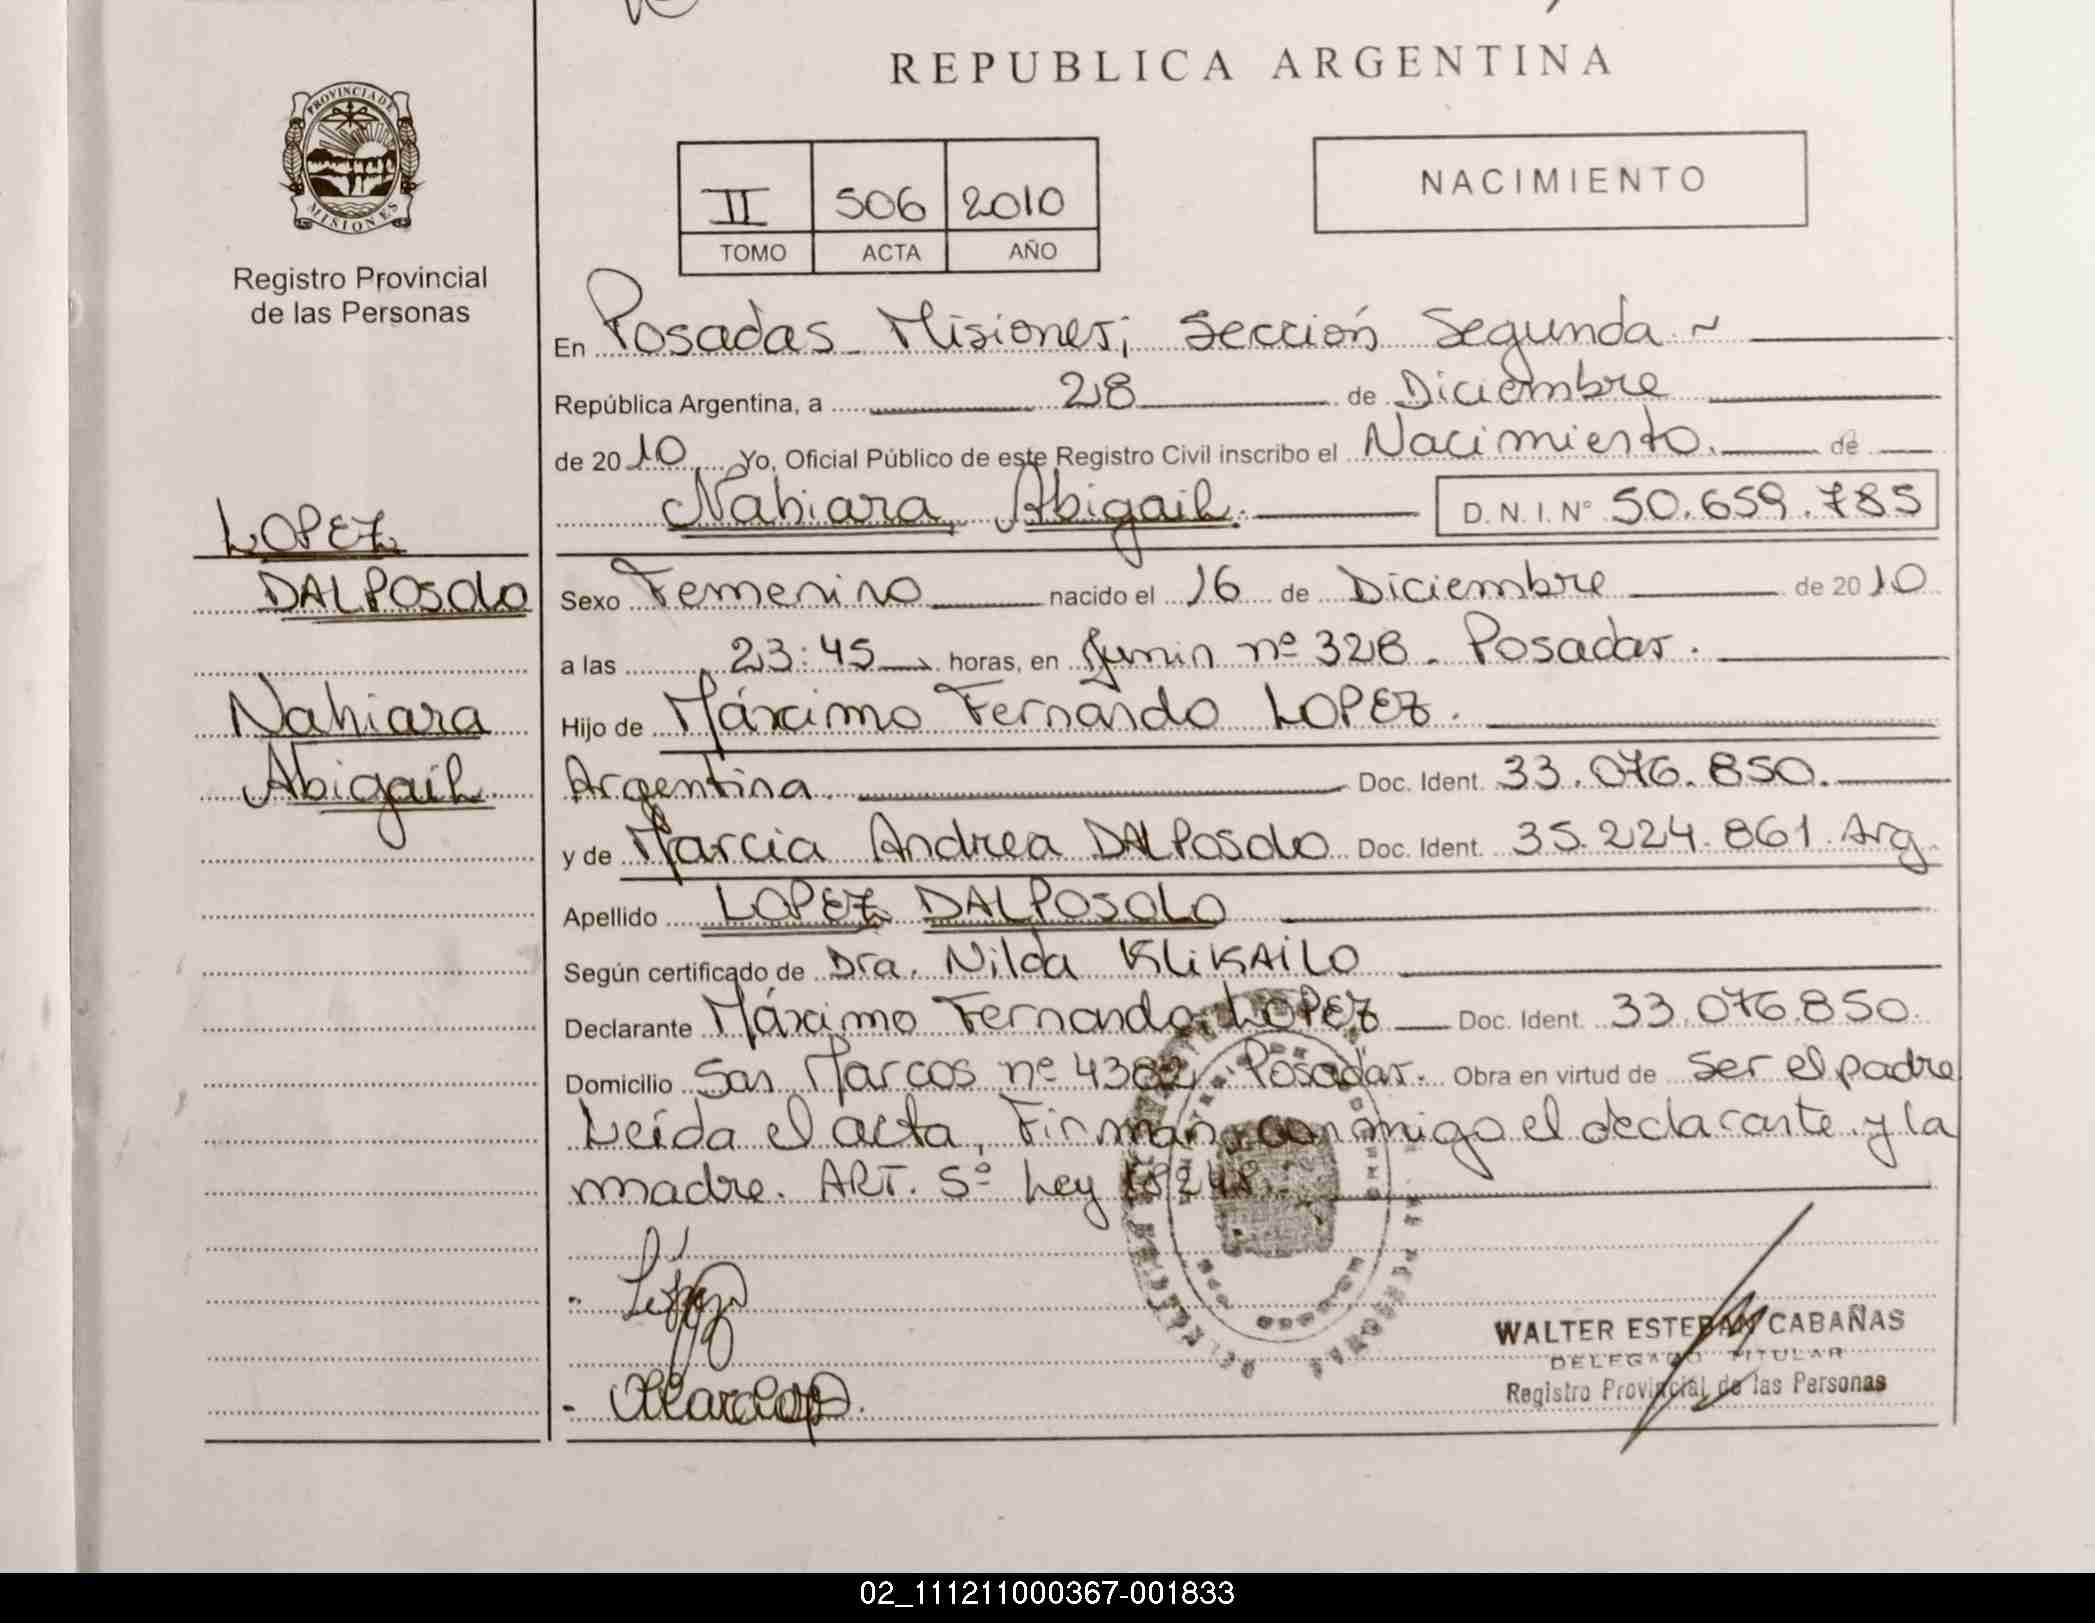 REPUBLICA ARGENTINA
PROVINCIA DE
MISIONES
Registro Provincial
de las Personas
II 506 2010
TOMO ACTA AÑO
NACIMIENTO
LOPEZ
DALPOSOLO
Nahiara
Abigail
En Posadas - Misiones; Sección Segunda ~
República Argentina, a 28 de Diciembre
de 2010 Yo, Oficial Público de este Registro Civil inscribo el Nacimiento. de
Nahiara Abigail. D.N.I. Nº 50.659.785
Sexo Femenino nacido el 16 de Diciembre de 2010
a las 23:45 horas, en Junin nº 328. Posadas.
Hijo de Máximo Fernando LOPEZ.
Argentina. Doc. Ident. 33.076.850.
y de Marcia Andrea DALPOSOLO Doc. Ident. 35.224.861. Arg.
Apellido LOPEZ DALPOSOLO
Según certificado de Dra. Nilda KLIKAILO
Declarante Máximo Fernando LOPEZ Doc. Ident. 33.076.850.
Domicilio San Marcos nº 4382 Posadas. Obra en virtud de ser el padre
Leída el acta, Firman conmigo el declarante y la
madre. ART. 5º Ley 18248.
WALTER ESTEBAN CABAÑAS
DELEGADO TITULAR
Registro Provincial de las Personas
02_111211000367-001833